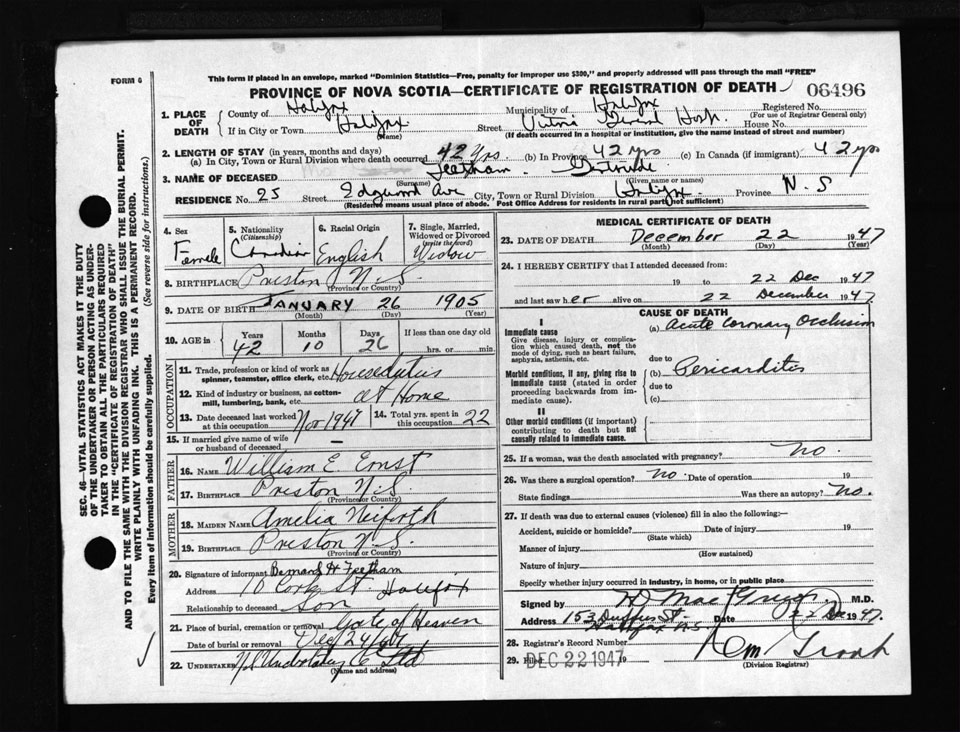 FORM 6
This form if placed in an envelope, marked "Dominion Statistics—Free, penalty for improper use $300," and properly addressed will pass through the mail "FREE"
PROVINCE OF NOVA SCOTIA—CERTIFICATE OF REGISTRATION OF DEATH 06496
1. PLACE OF DEATH
County of Halifax Municipality of Halifax Registered No.
(For use of Registrar General only)
If in City or Town Halifax Street Victoria General Hosp. House No.
(Name) (If death occurred in a hospital or institution, give the name instead of street and number)
2. LENGTH OF STAY (in years, months and days)
(a) In City, Town or Rural Division where death occurred 42 yrs (b) In Province 42 yrs (c) In Canada (if immigrant) 42 yrs
3. NAME OF DECEASED Feetham Gertrude
(Surname) (Given name or names)
RESIDENCE No. 25 Street Edgewood Ave City, Town or Rural Division Halifax Province N.S
(Residence means usual place of abode. Post Office Address for residents in rural parts not sufficient)
4. Sex Female
5. Nationality (Citizenship) Canadian
6. Racial Origin English
7. Single, Married, Widowed or Divorced (write the word) Widow
8. BIRTHPLACE Preston N.S.
(Province or Country)
9. DATE OF BIRTH JANUARY 26 1905
(Month) (Day) (Year)
10. AGE in Years Months Days If less than one day old
42 10 26 hrs. or min.
OCCUPATION
11. Trade, profession or kind of work as spinner, teamster, office clerk, etc. Houseduties
12. Kind of industry or business, as cotton-mill, lumbering, bank, etc. at Home
13. Date deceased last worked at this occupation Nov 1947
14. Total yrs. spent in this occupation 22
15. If married give name of wife or husband of deceased —
FATHER
16. NAME William E. Ernst
17. BIRTHPLACE Preston N.S.
(Province or Country)
MOTHER
18. MAIDEN NAME Amelia Neiforth
19. BIRTHPLACE Preston N.S.
(Province or Country)
20. Signature of informant Bernard H Feetham
Address 10 Cork St. Halifax
Relationship to deceased son
21. Place of burial, cremation or removal Gate of Heaven
Date of burial or removal Dec 24/47
22. UNDERTAKER N.S Undertaking Co Ltd
(Name and address)
MEDICAL CERTIFICATE OF DEATH
23. DATE OF DEATH December 22 1947
(Month) (Day) (Year)
24. I HEREBY CERTIFY that I attended deceased from:
19 to 22 Dec 1947
and last saw her alive on 22 December 1947
CAUSE OF DEATH
I
Immediate cause
Give disease, injury or complication which caused death, not the mode of dying, such as heart failure, asphyxia, asthenia, etc.
(a) Acute Coronary Occlusion
due to
Morbid conditions, if any, giving rise to immediate cause (stated in order proceeding backwards from immediate cause).
(b) Pericarditis
due to
(c)
II
Other morbid conditions (if important) contributing to death but not causally related to immediate cause.
25. If a woman, was the death associated with pregnancy? no.
26. Was there a surgical operation? no. Date of operation 19
State findings Was there an autopsy? no.
27. If death was due to external causes (violence) fill in also the following:—
Accident, suicide or homicide? Date of injury 19
(State which)
Manner of injury
(How sustained)
Nature of injury
Specify whether injury occurred in industry, in home, or in public place
Signed by H D MacGregor M.D.
Address 153 St. Halifax N.S. Date 22 Dec 1947.
28. Registrar's Record Number
29. Filed DEC 22 1947 19
(Division Registrar)
SEC. 46—VITAL STATISTICS ACT MAKES IT THE DUTY
OF THE UNDERTAKER OR PERSON ACTING AS UNDER-
TAKER TO OBTAIN ALL THE PARTICULARS REQUIRED
IN THE "CERTIFICATE OF REGISTRATION OF DEATH"
AND TO FILE THE SAME WITH THE DIVISION REGISTRAR WHO SHALL ISSUE THE BURIAL PERMIT.
WRITE PLAINLY WITH UNFADING INK. THIS IS A PERMANENT RECORD.
Every item of information should be carefully supplied. (See reverse side for instructions.)